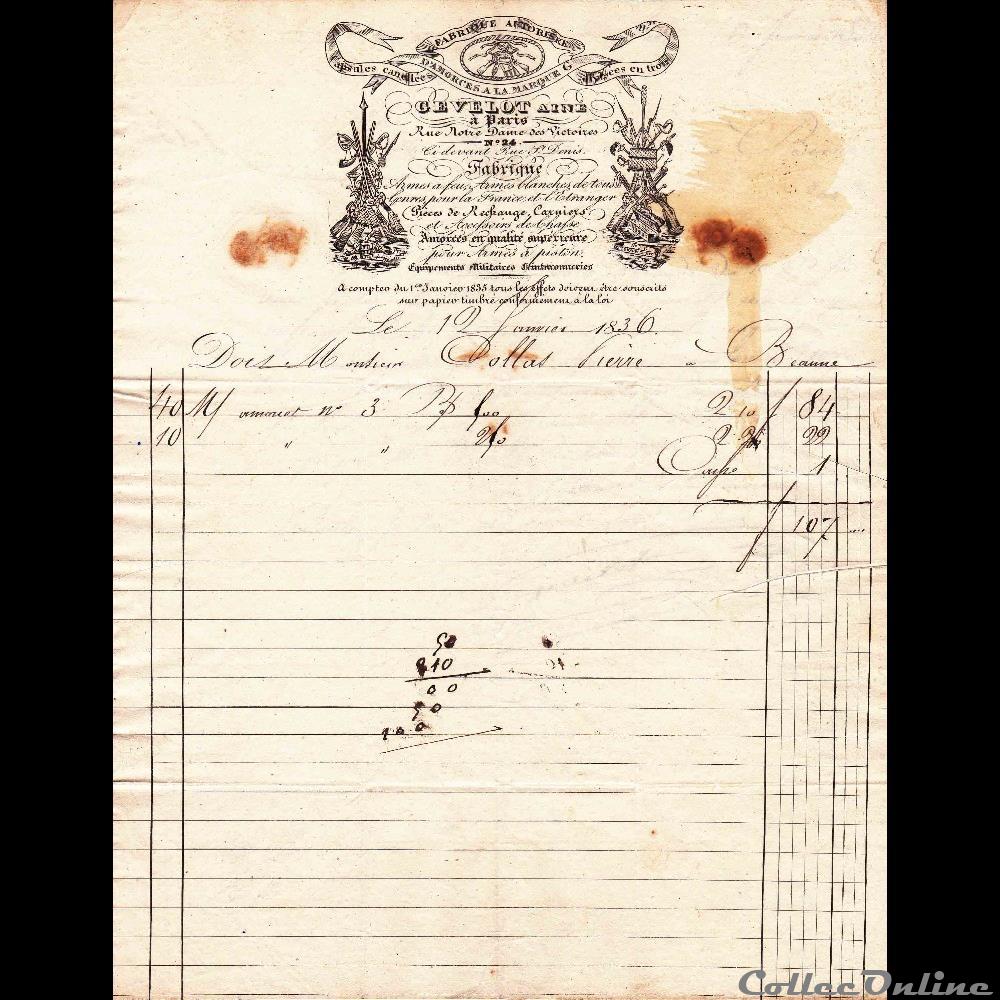 FABRIQUE AUTORISÉE
D'AMORCES A LA MARQUE G
Capsules cannelées
GEVELOT AINÉ
à Paris
Rue Notre Dame des Victoires
N° 24
Ci devant Rue St Denis.
Fabrique
Armes à feu, Armes blanches, de tous
Genres pour la France et l'Etranger
Pièces de Rechange, Carniers
et Accessoirs de Chasse
Amorces en qualité supérieure
pour Armes à piston.
Equipements Militaires
A compter du 1er Janvier 1835 tous les effets doivent être souscrits
sur papier timbré conformément à la loi
Le 12 Janvier 1836
Doit Monsieur Pierre à Beaune
40 M/ n° 3 2 10 84
10 " " 22
1
107
50
210
00
50